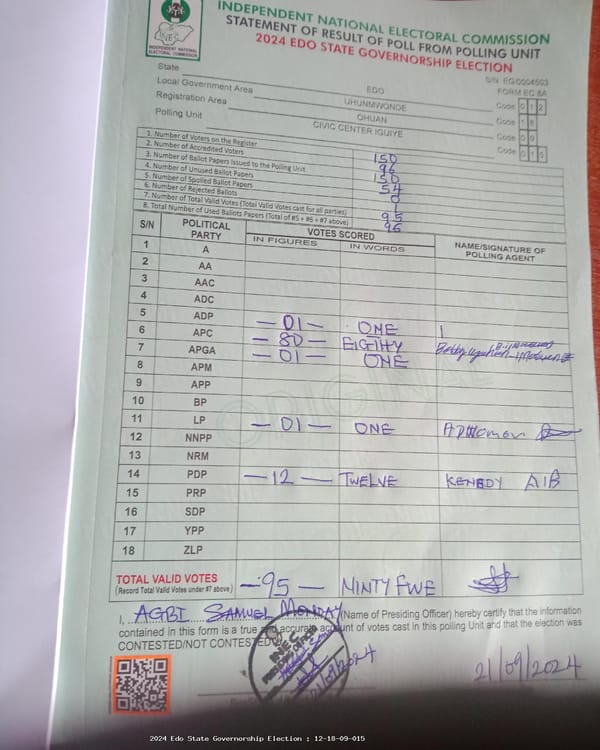 INDEPENDENT NATIONAL ELECTORAL COMMISSION
STATEMENT OF RESULT OF POLL FROM POLLING UNIT
2024 EDO STATE GOVERNORSHIP ELECTION
INDEPENDENT NATIONAL ELECTORAL COMMISSION
S/N EG0004503
FORM EC 8A
State EDO Code 012
Local Government Area UHUNMWONDE Code 18
Registration Area OHUAN Code 09
Polling Unit CIVIC CENTER IGUIYE Code 015
1. Number of Voters on the Register 150
2. Number of Accredited Voters 96
3. Number of Ballot Papers Issued to the Polling Unit 150
4. Number of Unused Ballot Papers 54
5. Number of Spoiled Ballot Papers 0
6. Number of Rejected Ballots 1
7. Number of Total Valid Votes (Total Valid Votes cast for all parties) 95
8. Total Number of Used Ballots Papers (Total of #5 + #6 + #7 above) 96
S/N POLITICAL PARTY VOTES SCORED NAME/SIGNATURE OF POLLING AGENT
IN FIGURES IN WORDS
1 A
2 AA
3 AAC
4 ADC
5 ADP - 01 - ONE
6 APC - 80 - EIGIHY
7 APGA - 01 - ONE
8 APM
9 APP
10 BP
11 LP - 01 - ONE
12 NNPP
13 NRM
14 PDP - 12 - TWELVE KENEDY AIB
15 PRP
16 SDP
17 YPP
18 ZLP
ORIGINAL
TOTAL VALID VOTES - 95 - NINTY FWE
(Record Total Valid Votes under #7 above)
I, AGBI SAMUEL MONDAY (Name of Presiding Officer) hereby certify that the information
contained in this form is a true and accurate account of votes cast in this polling Unit and that the election was
CONTESTED/NOT CONTESTED
21/09/2024
21/09/2024
2024 Edo State Governorship Election : 12-18-09-015